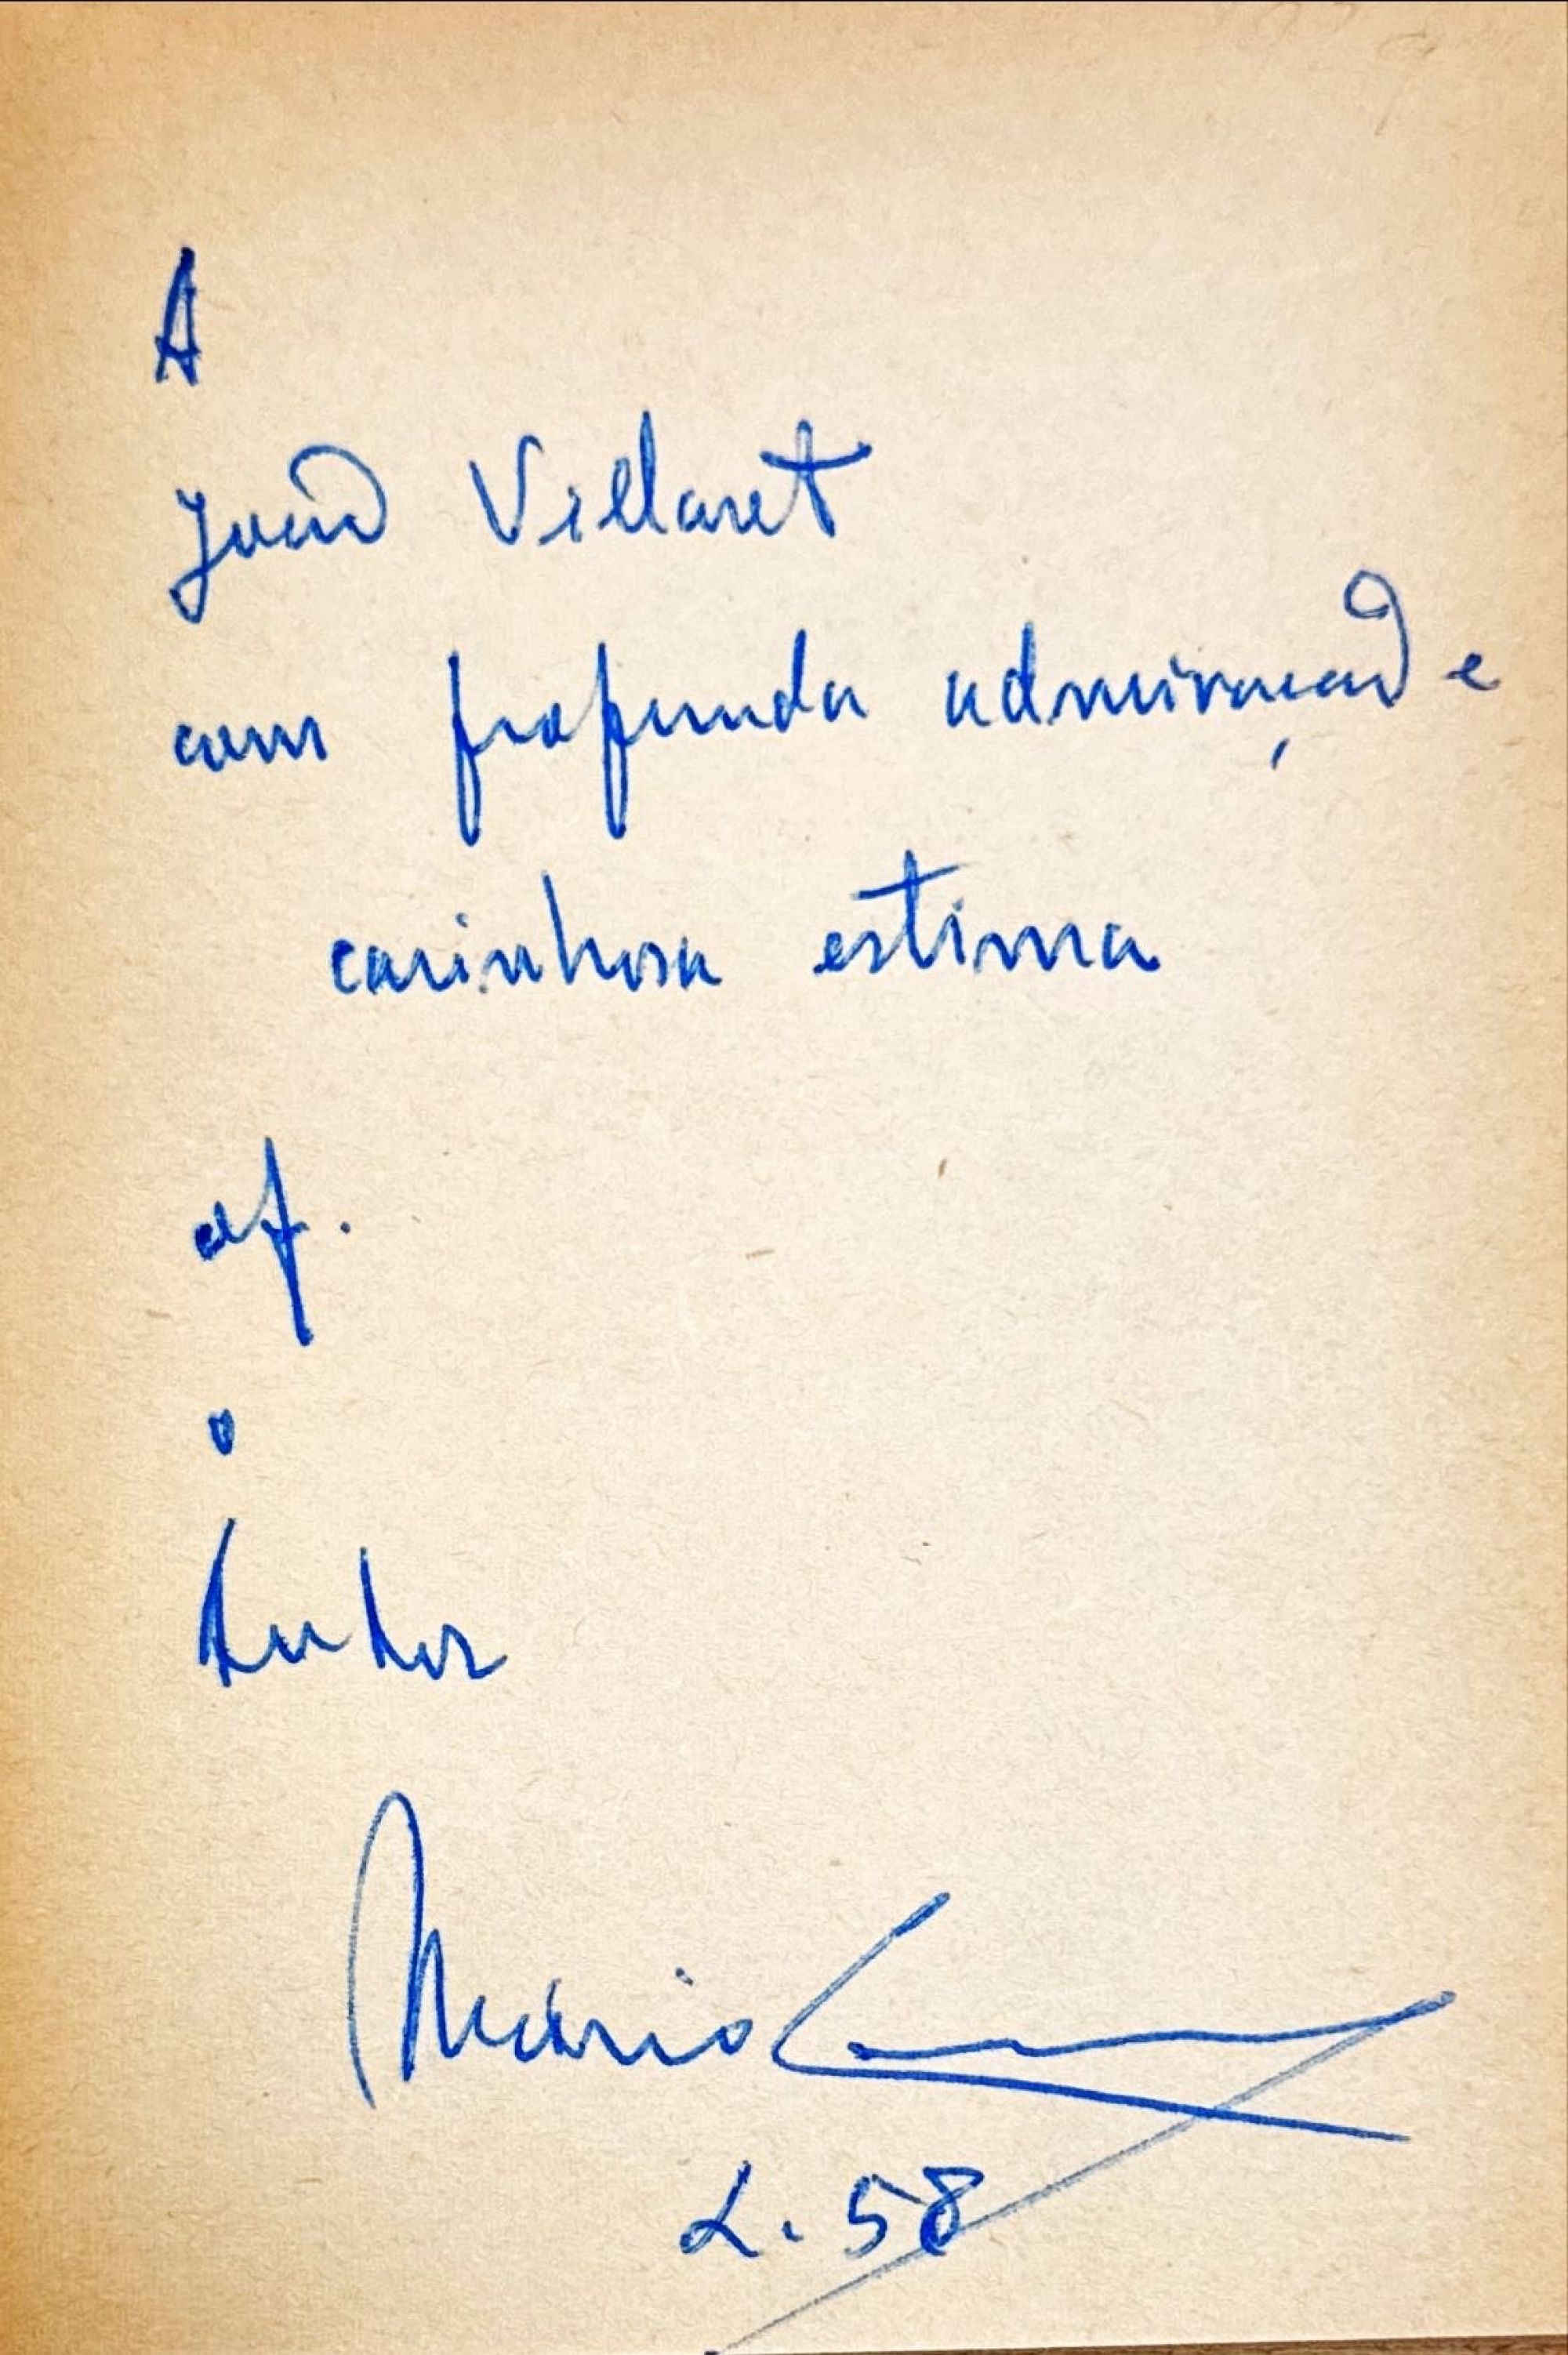 A
João Villaret
com profunda admiração e
carinhosa estima
af.
o
Autor
Mário
L. 58